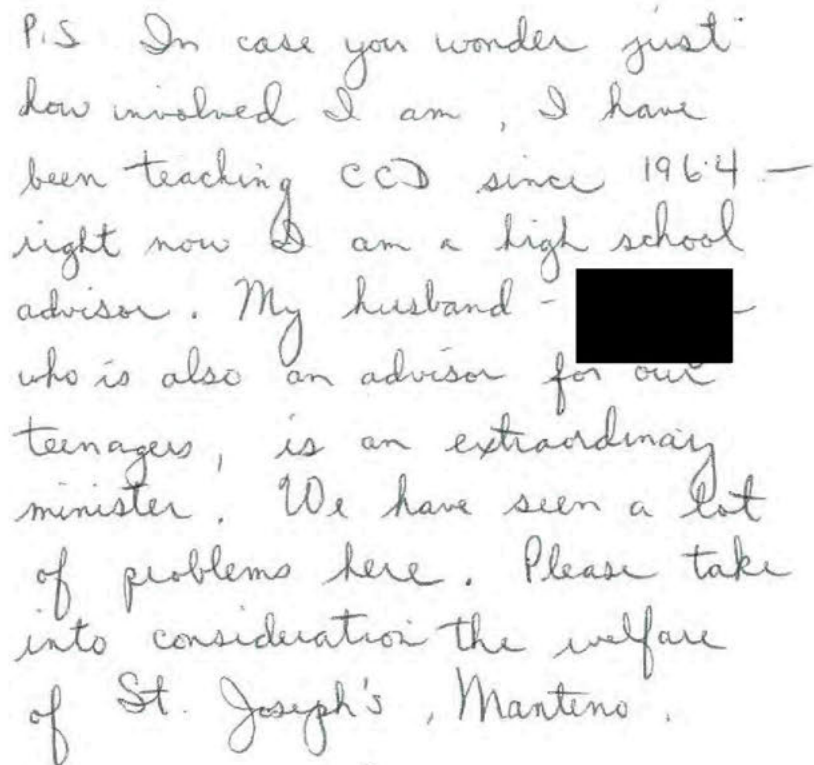 P.S In case you wonder just
how involved I am, I have
been teaching CCD since 1964 —
right now I am a high school
advisor. My husband -
who is also an advisor for our
teenagers, is an extraordinary
minister. We have seen a lot
of problems here. Please take
into consideration the welfare
of St. Joseph's, Manteno.